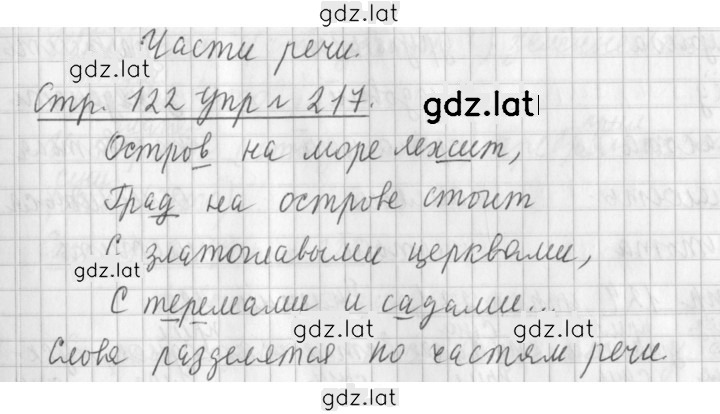 gdz.lat
Части речи.
gdz.lat
Стр. 122 Упр г 217.
gdz.lat
Остров на море лежит,
Град на острове стоит
С златоглавыми церквами,
gdz.lat
С теремами и садами...
gdz.lat gdz.lat
Слова разделятся по частям речи.
gdz.lat